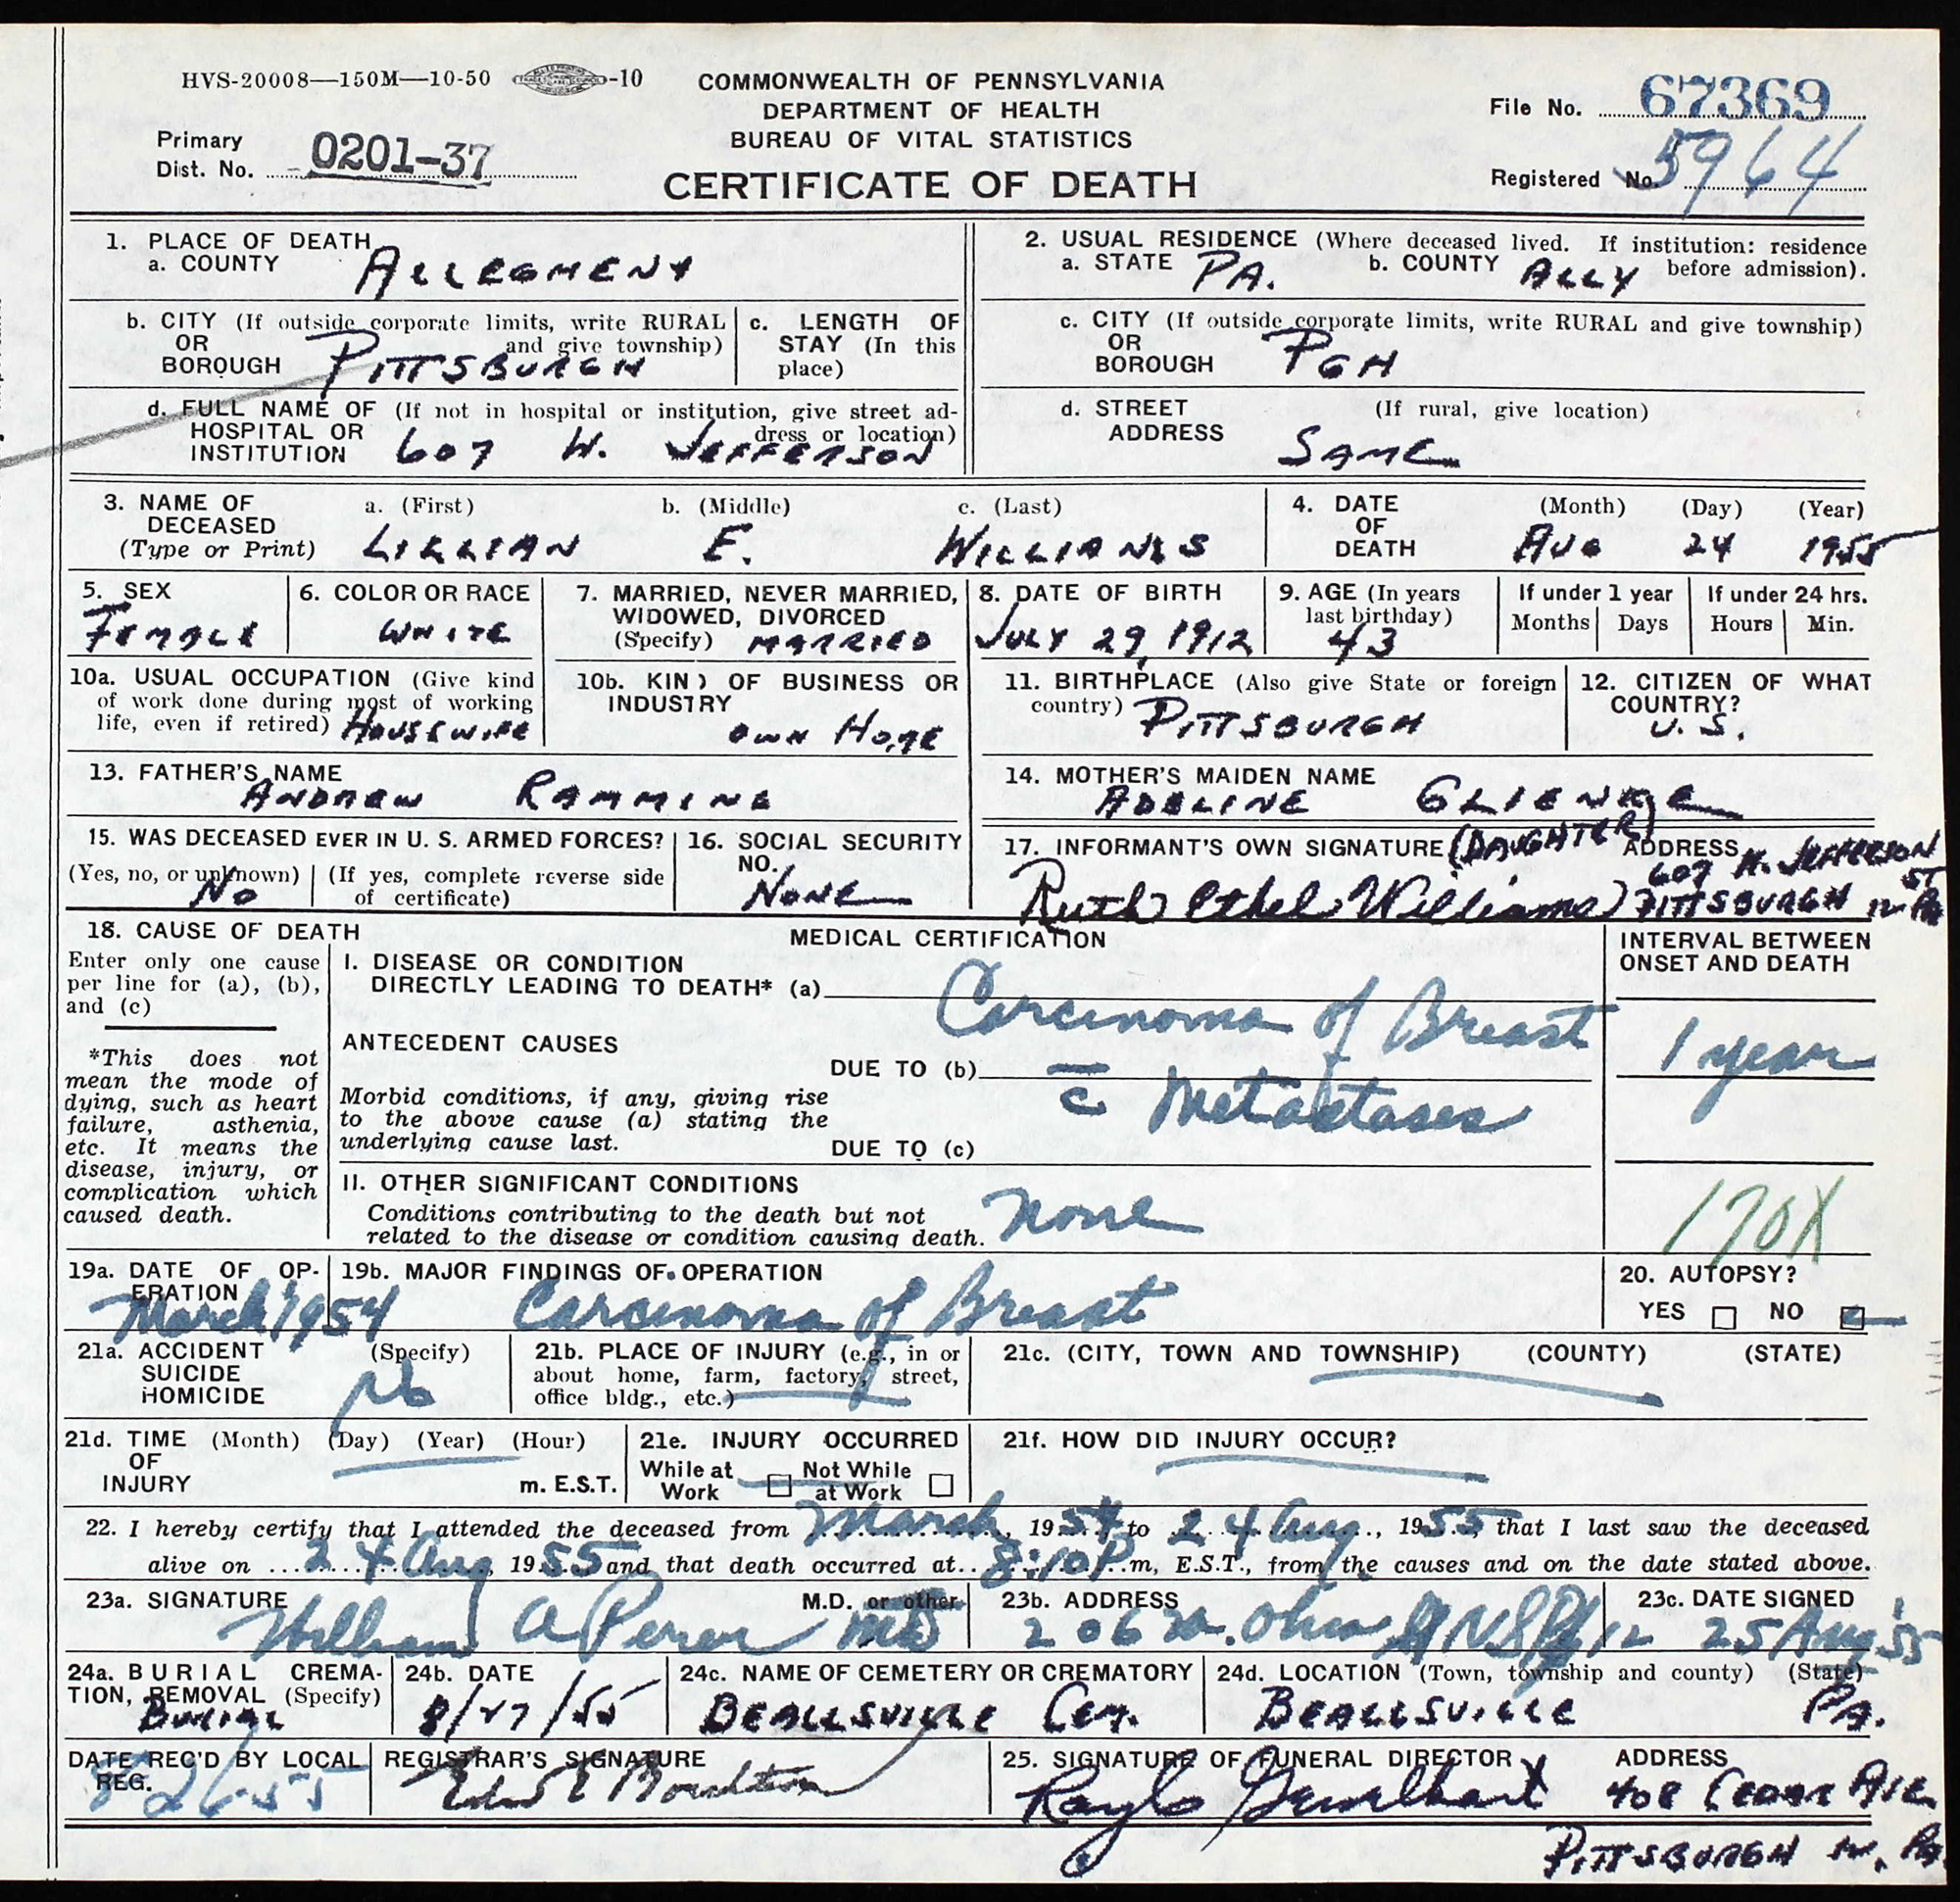 HVS-20008—150M—10-50 -10
COMMONWEALTH OF PENNSYLVANIA
DEPARTMENT OF HEALTH
BUREAU OF VITAL STATISTICS
CERTIFICATE OF DEATH
Primary
Dist. No. 0201-37
File No. 67369
Registered No. 5964
1. PLACE OF DEATH
a. COUNTY ALLEGHENY
2. USUAL RESIDENCE (Where deceased lived. If institution: residence
before admission).
a. STATE PA. b. COUNTY ALLY
b. CITY (If outside corporate limits, write RURAL
OR and give township)
BOROUGH PITTSBURGH
c. LENGTH OF
STAY (In this
place)
c. CITY (If outside corporate limits, write RURAL and give township)
OR
BOROUGH PGH
d. FULL NAME OF (If not in hospital or institution, give street ad-
HOSPITAL OR dress or location)
INSTITUTION 607 W. JEFFERSON
d. STREET (If rural, give location)
ADDRESS
SAME
3. NAME OF a. (First) b. (Middle) c. (Last)
DECEASED
(Type or Print) LILLIAN E. WILLIAMS
4. DATE (Month) (Day) (Year)
OF
DEATH AUG 24 1955
5. SEX
FEMALE
6. COLOR OR RACE
WHITE
7. MARRIED, NEVER MARRIED,
WIDOWED, DIVORCED
(Specify) MARRIED
8. DATE OF BIRTH
JULY 29, 1912
9. AGE (In years
last birthday)
43
If under 1 year
Months Days
If under 24 hrs.
Hours Min.
10a. USUAL OCCUPATION (Give kind
of work done during most of working
life, even if retired) HOUSEWIFE
10b. KIND OF BUSINESS OR
INDUSTRY
OWN HOME
11. BIRTHPLACE (Also give State or foreign
country) PITTSBURGH
12. CITIZEN OF WHAT
COUNTRY?
U. S.
13. FATHER'S NAME
ANDREW RAMMING
14. MOTHER'S MAIDEN NAME
ADELINE GLIENKE
15. WAS DECEASED EVER IN U. S. ARMED FORCES?
(Yes, no, or unknown) (If yes, complete reverse side
No of certificate)
16. SOCIAL SECURITY
NO.
NONE
17. INFORMANT'S OWN SIGNATURE (DAUGHTER) ADDRESS
607 W. JEFFERSON
ST
Ruth Ethel Williams PITTSBURGH PA
18. CAUSE OF DEATH
Enter only one cause
per line for (a), (b),
and (c)
*This does not
mean the mode of
dying, such as heart
failure, asthenia,
etc. It means the
disease, injury, or
complication which
caused death.
MEDICAL CERTIFICATION
I. DISEASE OR CONDITION
DIRECTLY LEADING TO DEATH* (a)
Carcinoma of Breast
ANTECEDENT CAUSES
DUE TO (b)
c̄ Metastases
Morbid conditions, if any, giving rise
to the above cause (a) stating the
underlying cause last.
DUE TO (c)
II. OTHER SIGNIFICANT CONDITIONS
Conditions contributing to the death but not
related to the disease or condition causing death.
none
INTERVAL BETWEEN
ONSET AND DEATH
1 year
170X
19a. DATE OF OP-
ERATION
March 1954
19b. MAJOR FINDINGS OF OPERATION
Carcinoma of Breast
20. AUTOPSY?
YES NO
21a. ACCIDENT (Specify)
SUICIDE
HOMICIDE
No
21b. PLACE OF INJURY (e.g., in or
about home, farm, factory, street,
office bldg., etc.)
21c. (CITY, TOWN AND TOWNSHIP) (COUNTY) (STATE)
21d. TIME (Month) (Day) (Year) (Hour)
OF
INJURY m. E.S.T.
21e. INJURY OCCURRED
While at Not While
Work at Work
21f. HOW DID INJURY OCCUR?
22. I hereby certify that I attended the deceased from March, 1954, to 24 Aug, 1955, that I last saw the deceased
alive on 24 Aug, 1955 and that death occurred at 8:10 P.m, E.S.T., from the causes and on the date stated above.
23a. SIGNATURE M.D. or other
William A MD
23b. ADDRESS
206 W. Ohio St NS Pgh 12
23c. DATE SIGNED
25 Aug '55
24a. BURIAL CREMA-
TION, REMOVAL (Specify)
BURIAL
24b. DATE
8/27/55
24c. NAME OF CEMETERY OR CREMATORY
BEALLSVILLE CEM.
24d. LOCATION (Town, township and county) (State)
BEALLSVILLE PA.
DATE REC'D BY LOCAL
REG.
8-26-55
REGISTRAR'S SIGNATURE
25. SIGNATURE OF FUNERAL DIRECTOR ADDRESS
408 CEDAR AVE
PITTSBURGH PA.